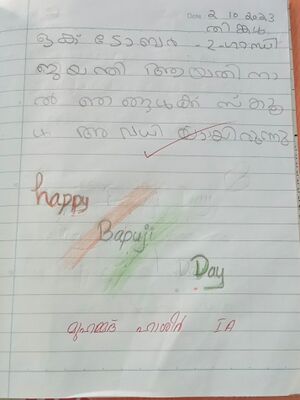 Date 2 10 2023
തിങ്കൾ
ഒക് ടോബർ - 2 - ഗാന്ധി
ജയന്തി ആയതിനാ
ൽ ഞങ്ങൾക്ക് സ്കൂ
ൾ അവധി യായിരുന്നു
happy
Bapuji
Day
മുഹമ്മദ് ഹാശിർ IA